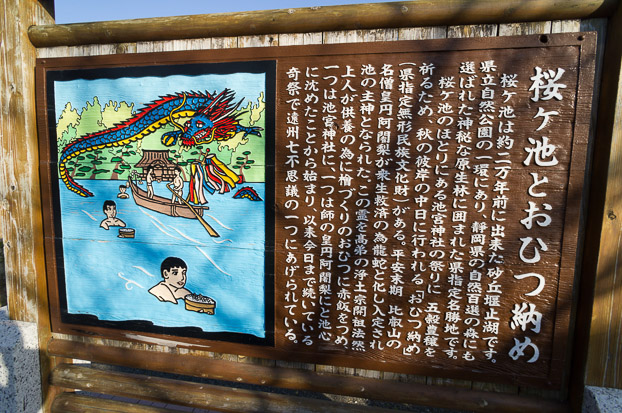 桜ヶ池とおひつ納め
桜ヶ池は約二万年前に出来た砂丘堰止湖です。
県立自然公園の一環にあり、静岡県の自然百選の森にも
選ばれた神秘な原生林に囲まれた県指定名勝地です。
桜ヶ池のほとりにある池宮神社の祭りに 五穀豊穣を
祈るため、秋の彼岸の中日に行われる「おひつ納め」
(県指定無形民族文化財)がある。平安末期、比叡山の
名僧皇円阿闍梨が衆生救済の為龍蛇と化し入定され
池の主神となられた。この霊を高弟の浄土宗開祖法然
上人が供養の為に檜づくりのおひつに赤飯をつめ、
一つは池宮神社に、一つは師の皇円阿闍梨にと池心
に沈めたことから始まり、以来今日まで続いている
奇祭で遠州七不思議の一つにあげられている。